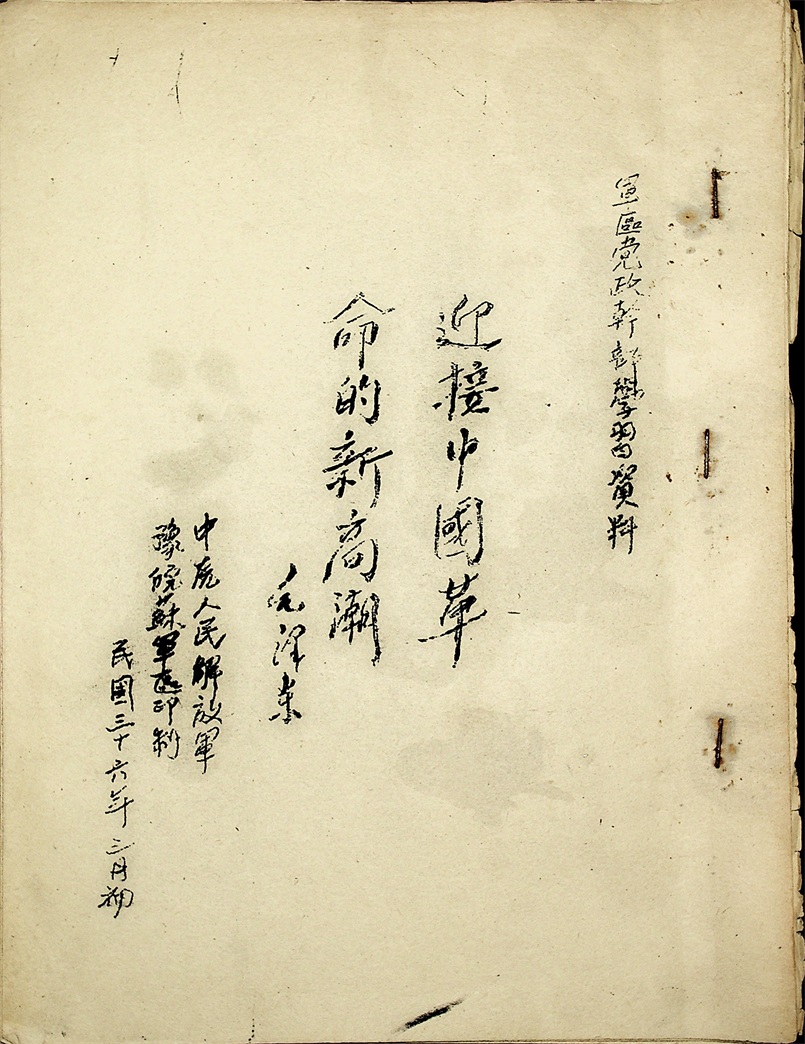 軍區党政幹部學習資料
迎接中國革
命的新高潮
毛澤东
中原人民解放軍
豫皖蘇軍區印制
民國三十六年三月初